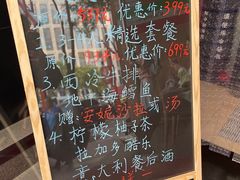 优惠价:399元
2.3-4人精选套餐
原价 优惠价:699元
3.西冷牛排
地中海鳕鱼
赠:安妮沙拉或汤
4.柠檬柚子茶
拉加多酷乐
意大利餐后酒